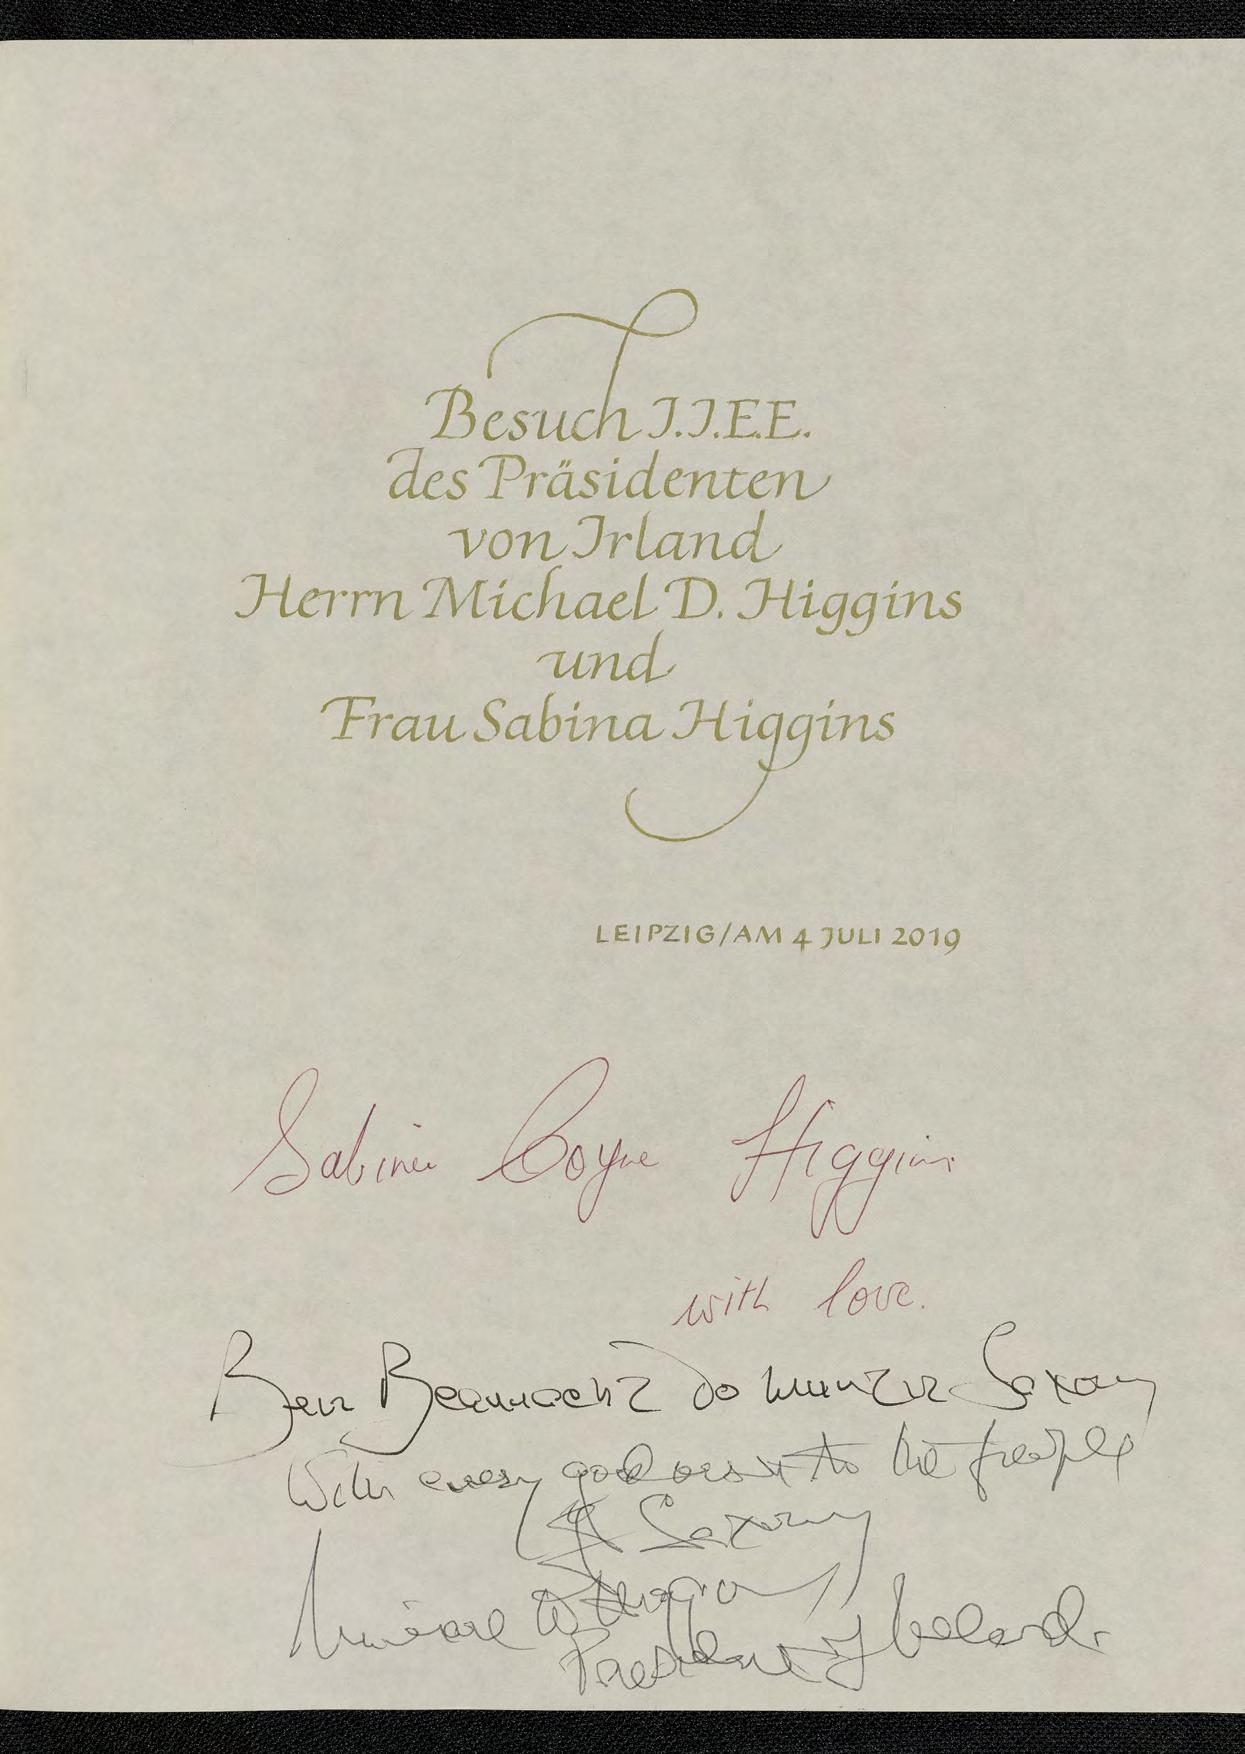 Besuch I.I.E.E.
des Präsidenten
von Irland
Herrn Michael D. Higgins
und
Frau Sabina Higgins
LEIPZIG/AM 4 JULI 2019
Sabina Coyne Higgins
with love.
Beir Beannacht do muintir Saxony
With every good wish to the people
of Saxony
Michael D Higgins
President of Ireland.